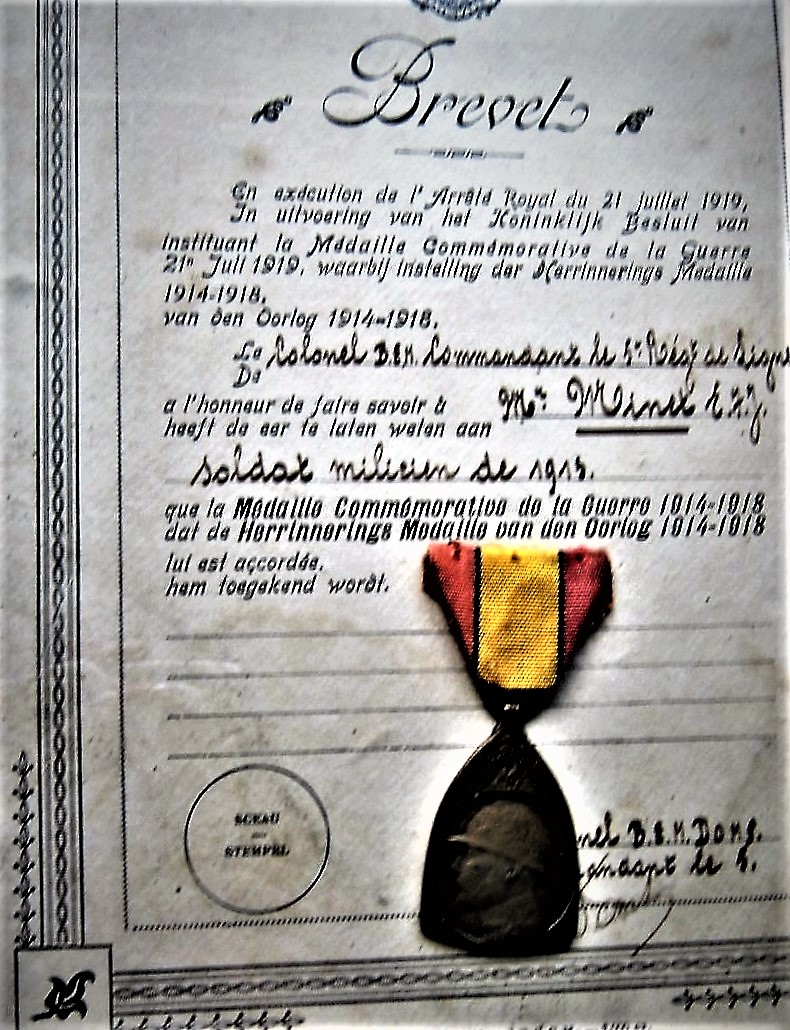 Brevet
En exécution de l'Arrêté Royal du 21 juillet 1919,
In uitvoering van het Koninklijk Besluit van
instituant la Médaille Commémorative de la Guerre
21n Juli 1919, waarbij instelling der Herrinnerings Medaille
1914-1918.
van den Oorlog 1914-1918.
Le Colonel B.E.M. Commandant le 5e Régt de Ligne
De
a l'honneur de faire savoir à Mr. Minet E.F.J.
heeft de eer te laten weten aan
soldat milicien de 1913.
que la Médaille Commémorative de la Guerre 1914-1918
dat de Herrinnerings Medaille van den Oorlog 1914-1918
lui est accordée.
hem toegekend wordt.
SCEAU
STEMPEL
nel B.E.M. DOMS.
mandant le 5.